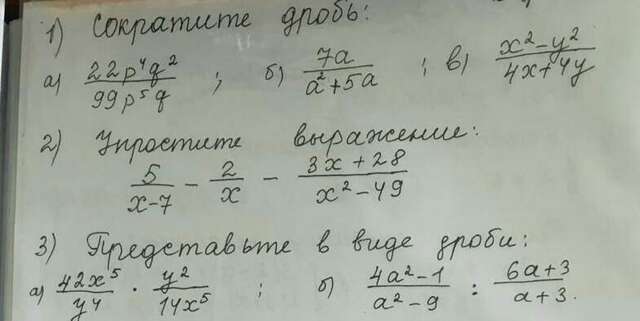 1) Сократите дробь:
а) 22p⁴q²/99p⁵q ; б) 7a/a²+5a ; в) x²-y²/4x+4y
2) Упростите выражение:
5/x-7 - 2/x - 3x+28/x²-49
3) Представьте в виде дроби:
а) 42x⁵/y⁴ · y²/14x⁵ ; б) 4a²-1/a²-9 : 6a+3/a+3.